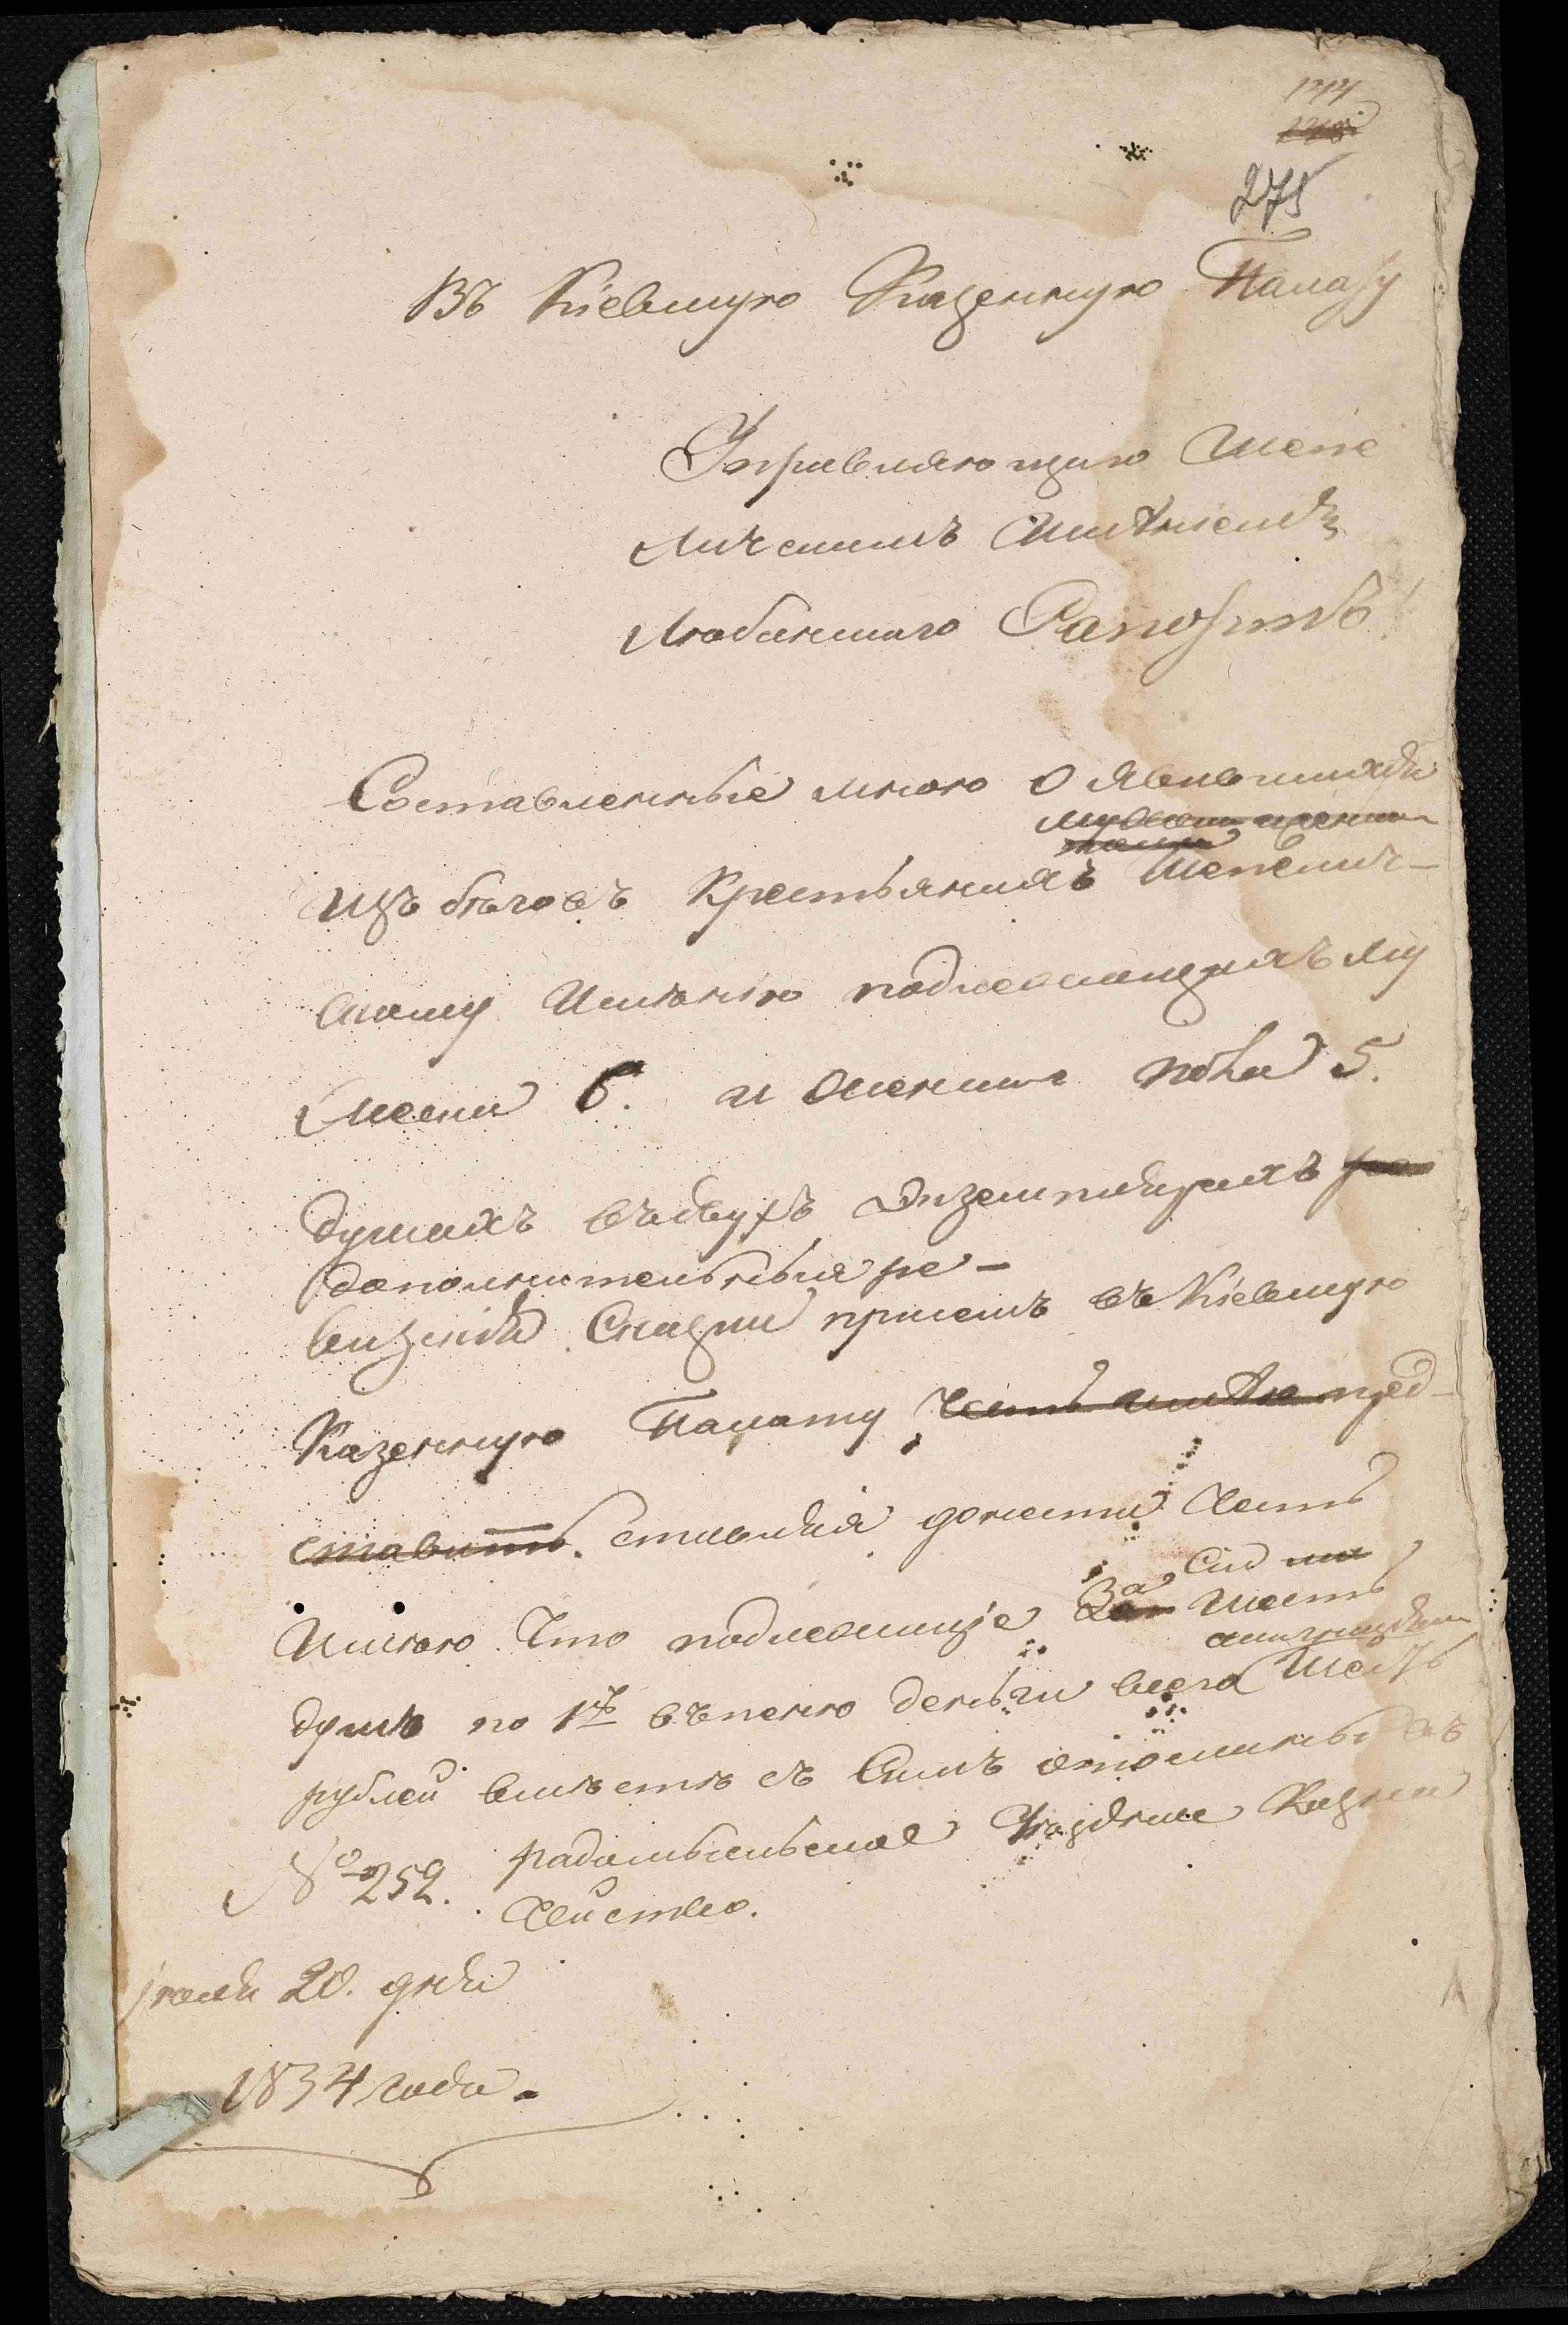 275
Въ Кіевскую Казенную Палату
Управляющаго Шепе
личскимъ Имѣніемъ
Любанскаго Рапортъ
Составленные мною О явившихся
изъ бѣговъ Крестьянахъ Шепелич-
скому Имѣнію подлежащихъ му
жеска 6. и женска пола 5.
душахъ въ двухъ Экземплярахъ
дополнительныя ре-
визскія Сказки при семъ въ Кіевскую
Казенную Палату честь имѣю пред-
ставить. донести Честь
Имѣю Что подлежащіе За Сіи
шесть
душъ по 1 р въ пеню деньги всего шесть
рублей вмѣстѣ съ Симъ
№ 252. радомысльское Уѣздное Казна
чейство.
20. дня
1834 года.